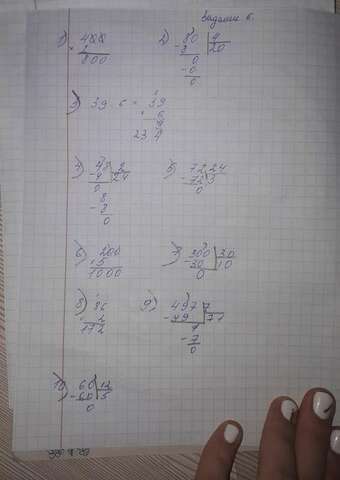 Задание 6.
1) 400
× 2
800
2) 80 | 4
- 8 | 20
0
- 0
0
3) 39 · 6 = 39
× 6
234
4) 48 | 2
- 4 | 24
8
- 8
0
5) 72 | 24
- 72 | 3
0
6) 200
× 5
1000
7) 300 | 30
- 30 | 10
0
8) 86
× 2
172
9) 497 | 7
- 49 | 71
7
- 7
0
10) 60 | 12
- 60 | 5
0